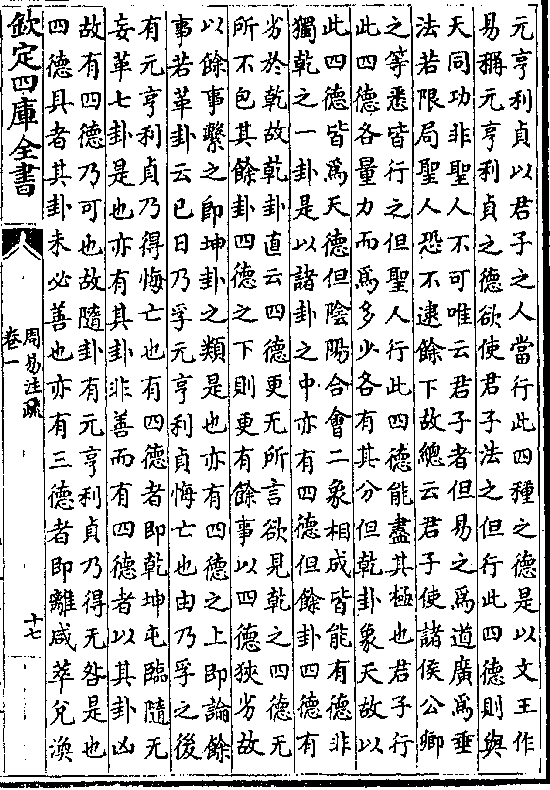 元亨利貞以君子之人當行此四種之德是以文王作
易稱元亨利貞之德欲使君子法之但行此四德則與
天同功非聖人不可唯云君子者但易之為道廣為垂
法若限局聖人恐不逮餘下故總云君子使諸侯公卿
之等悉皆行之但聖人行此四德能盡其極也君子行
此四德各量力而為多少各有其分但乾卦象天故以
此四德皆為天德但陰陽合會二象相成皆能有德非
獨乾之一卦是以諸卦之中亦有四德但餘卦四德有
劣於乾故乾卦直云四德更无所言欲見乾之四德无
所不包其餘卦四德之下則更有餘事以四德狹劣故
以餘事繫之即坤卦之類是也亦有四德之上即論餘
事若革卦云巳日乃孚元亨利貞悔亡也由乃孚之後
有元亨利貞乃得悔亡也有四德者即乾坤屯臨隨无
妄革七卦是也亦有其卦非善而有四德者以其卦凶
故有四德乃可也故隨卦有元亨利貞乃得无咎是也
四德具者其卦未必善也亦有三德者即離咸萃兌渙
欽定四庫全書
周易注疏
卷一
十七